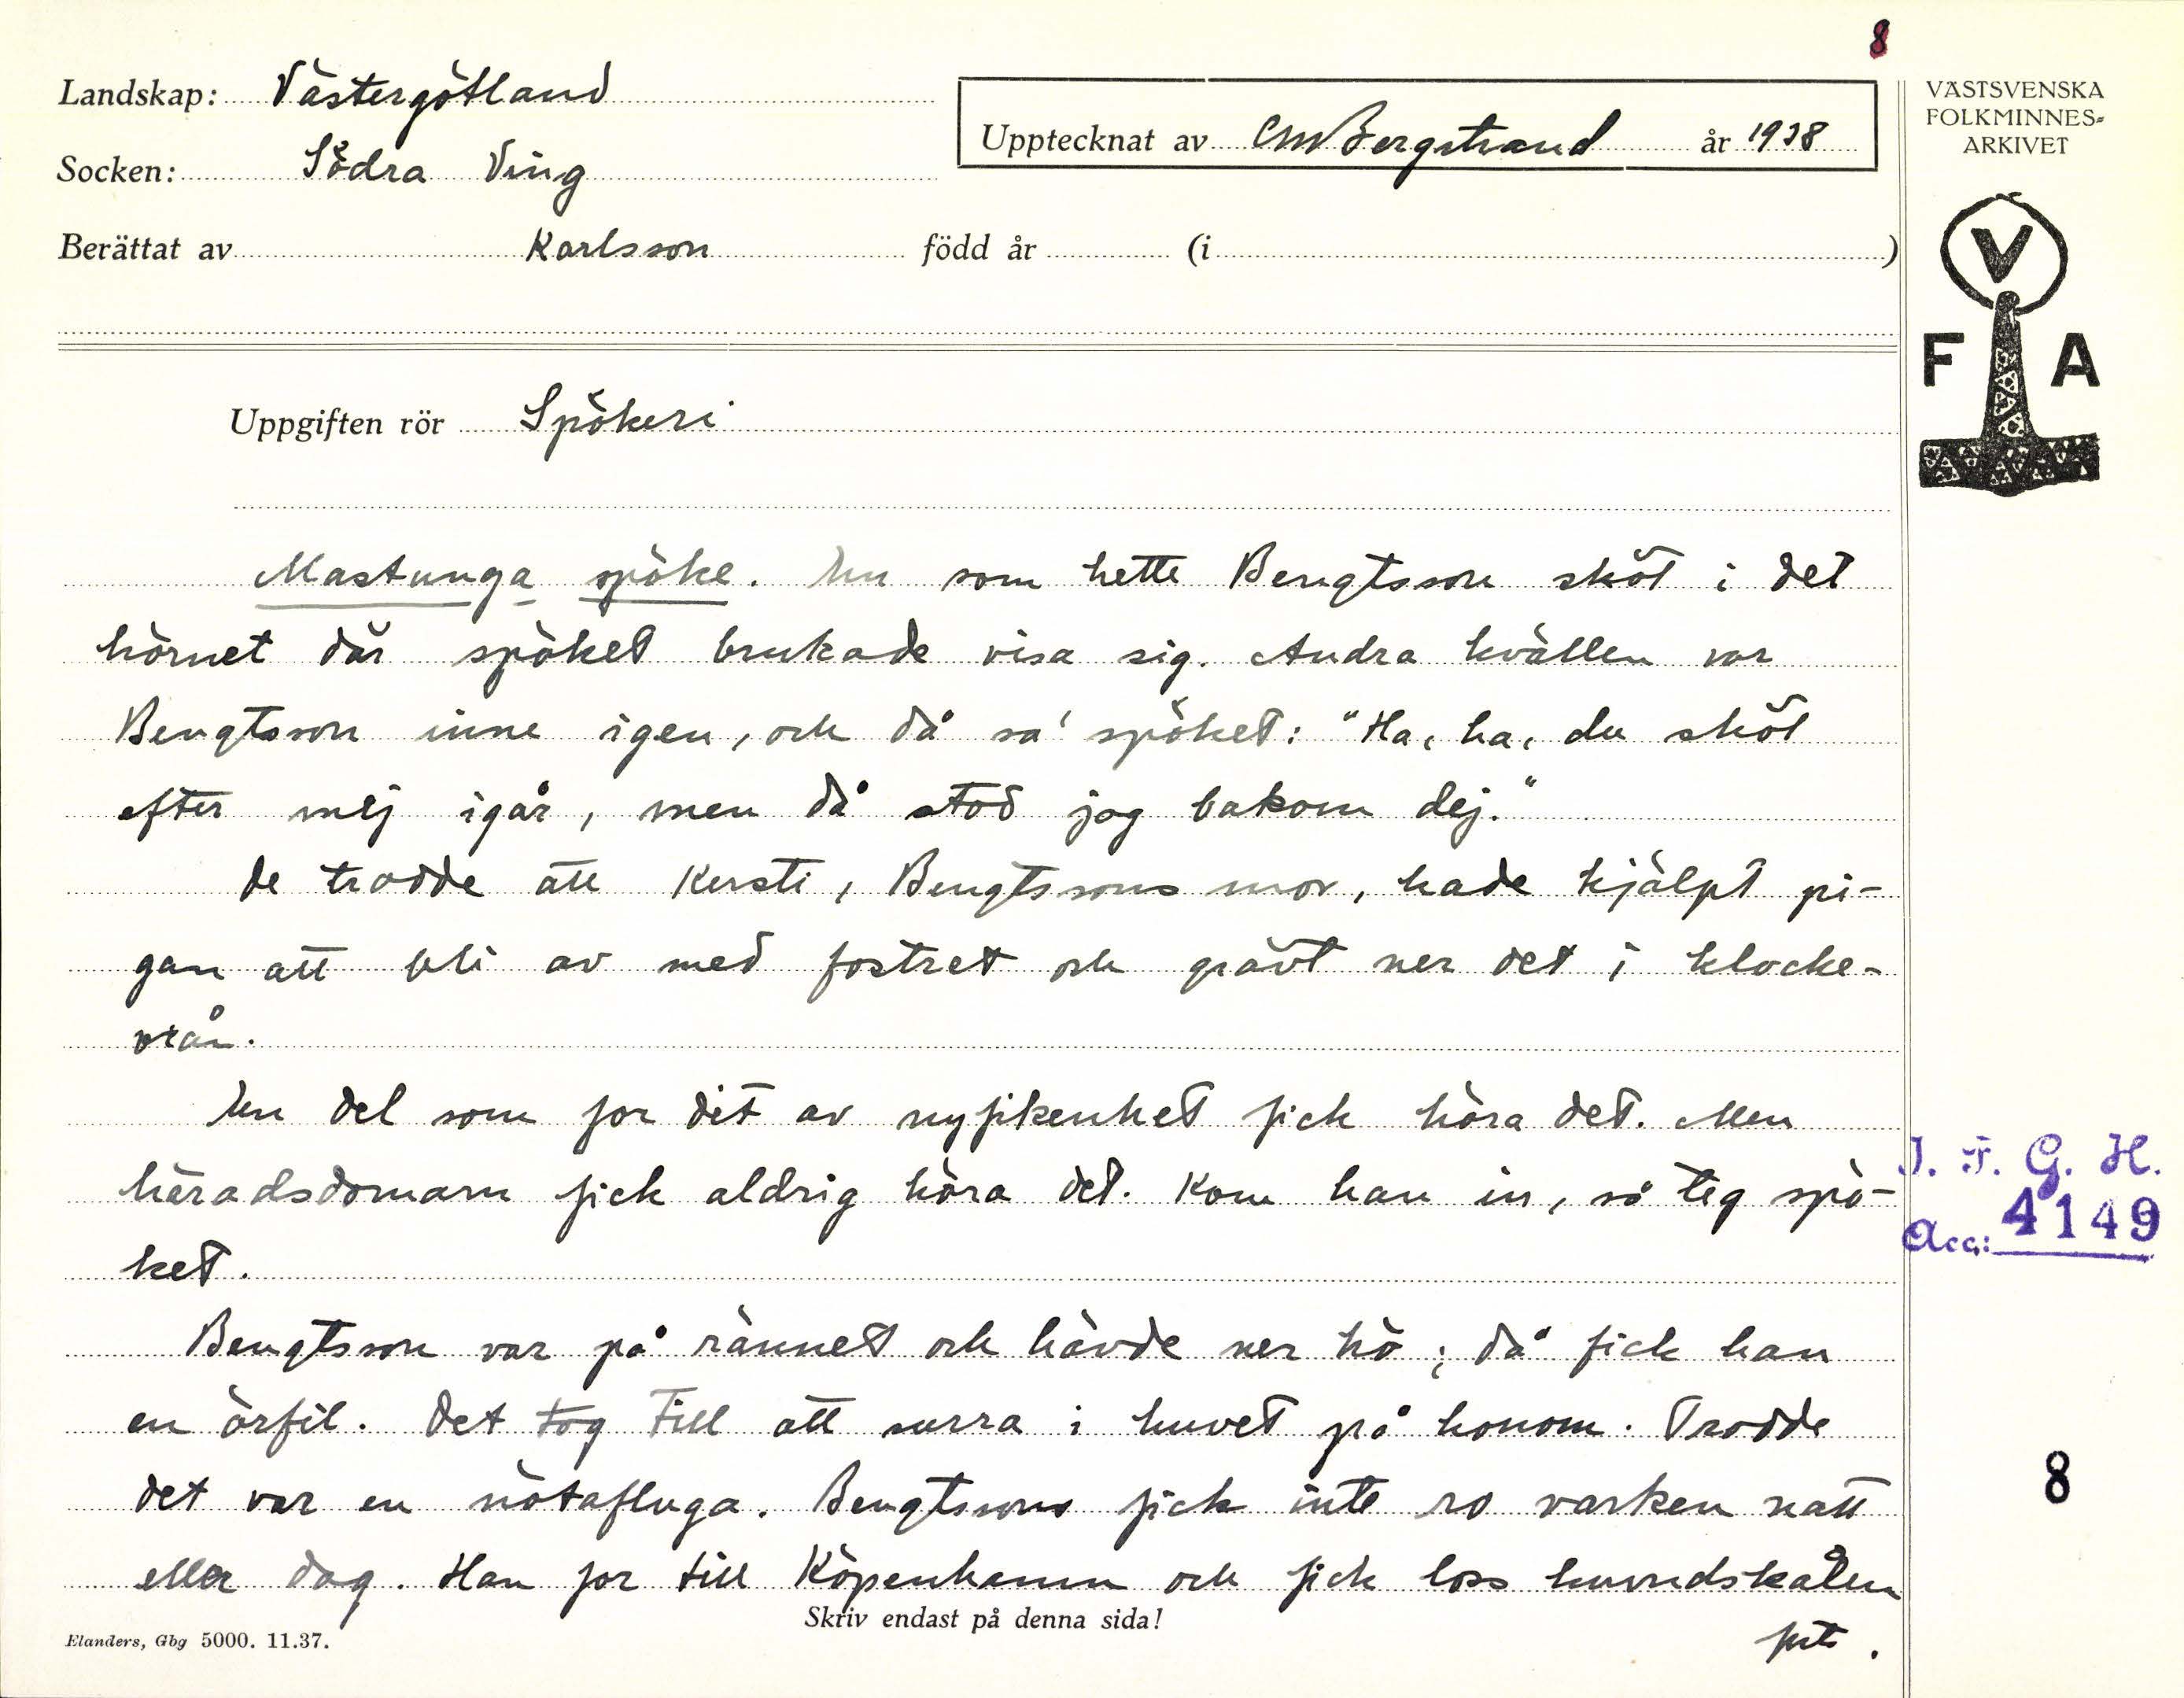 8
Landskap: Västergötland
Socken: Södra Ving
Upptecknat av CMBergstrand år 1938
Berättat av Karlsson född år (i )
VÄSTSVENSKA
FOLKMINNES-
ARKIVET
V
F A
Uppgiften rör Spökeri
Mastunga spöke. En som hette Bengtsson sköt i det
hörnet där spöket brukade visa sig. Andra kvällen var
Bengtsson inne igen, och då sa' spöket: "Ha, ha, du sköt
efter mej igår, men då stod jag bakom dej."
De trodde att Kersti, Bengtssons mor, hade hjälpt pi-
gan att bli av med fostret och grävt ner det i klocke-
vrån.
En del som for dit av nyfikenhet fick höra det. Men
häradsdomarn fick aldrig höra det. Kom han in, så teg spö-
ket.
Bengtsson var på rännet och hävde ner hö; då fick han
en örfil. Det tog till att surra i huvet på honom. Trodde
det var en nötafluga. Bengtssons fick inte ro varken natt
eller dag. Han for till Köpenhamn och fick loss huvudskålen
forts.
I. F. G. H.
Acc: 4149
8
Skriv endast på denna sida!
Elanders, Gbg 5000. 11.37.